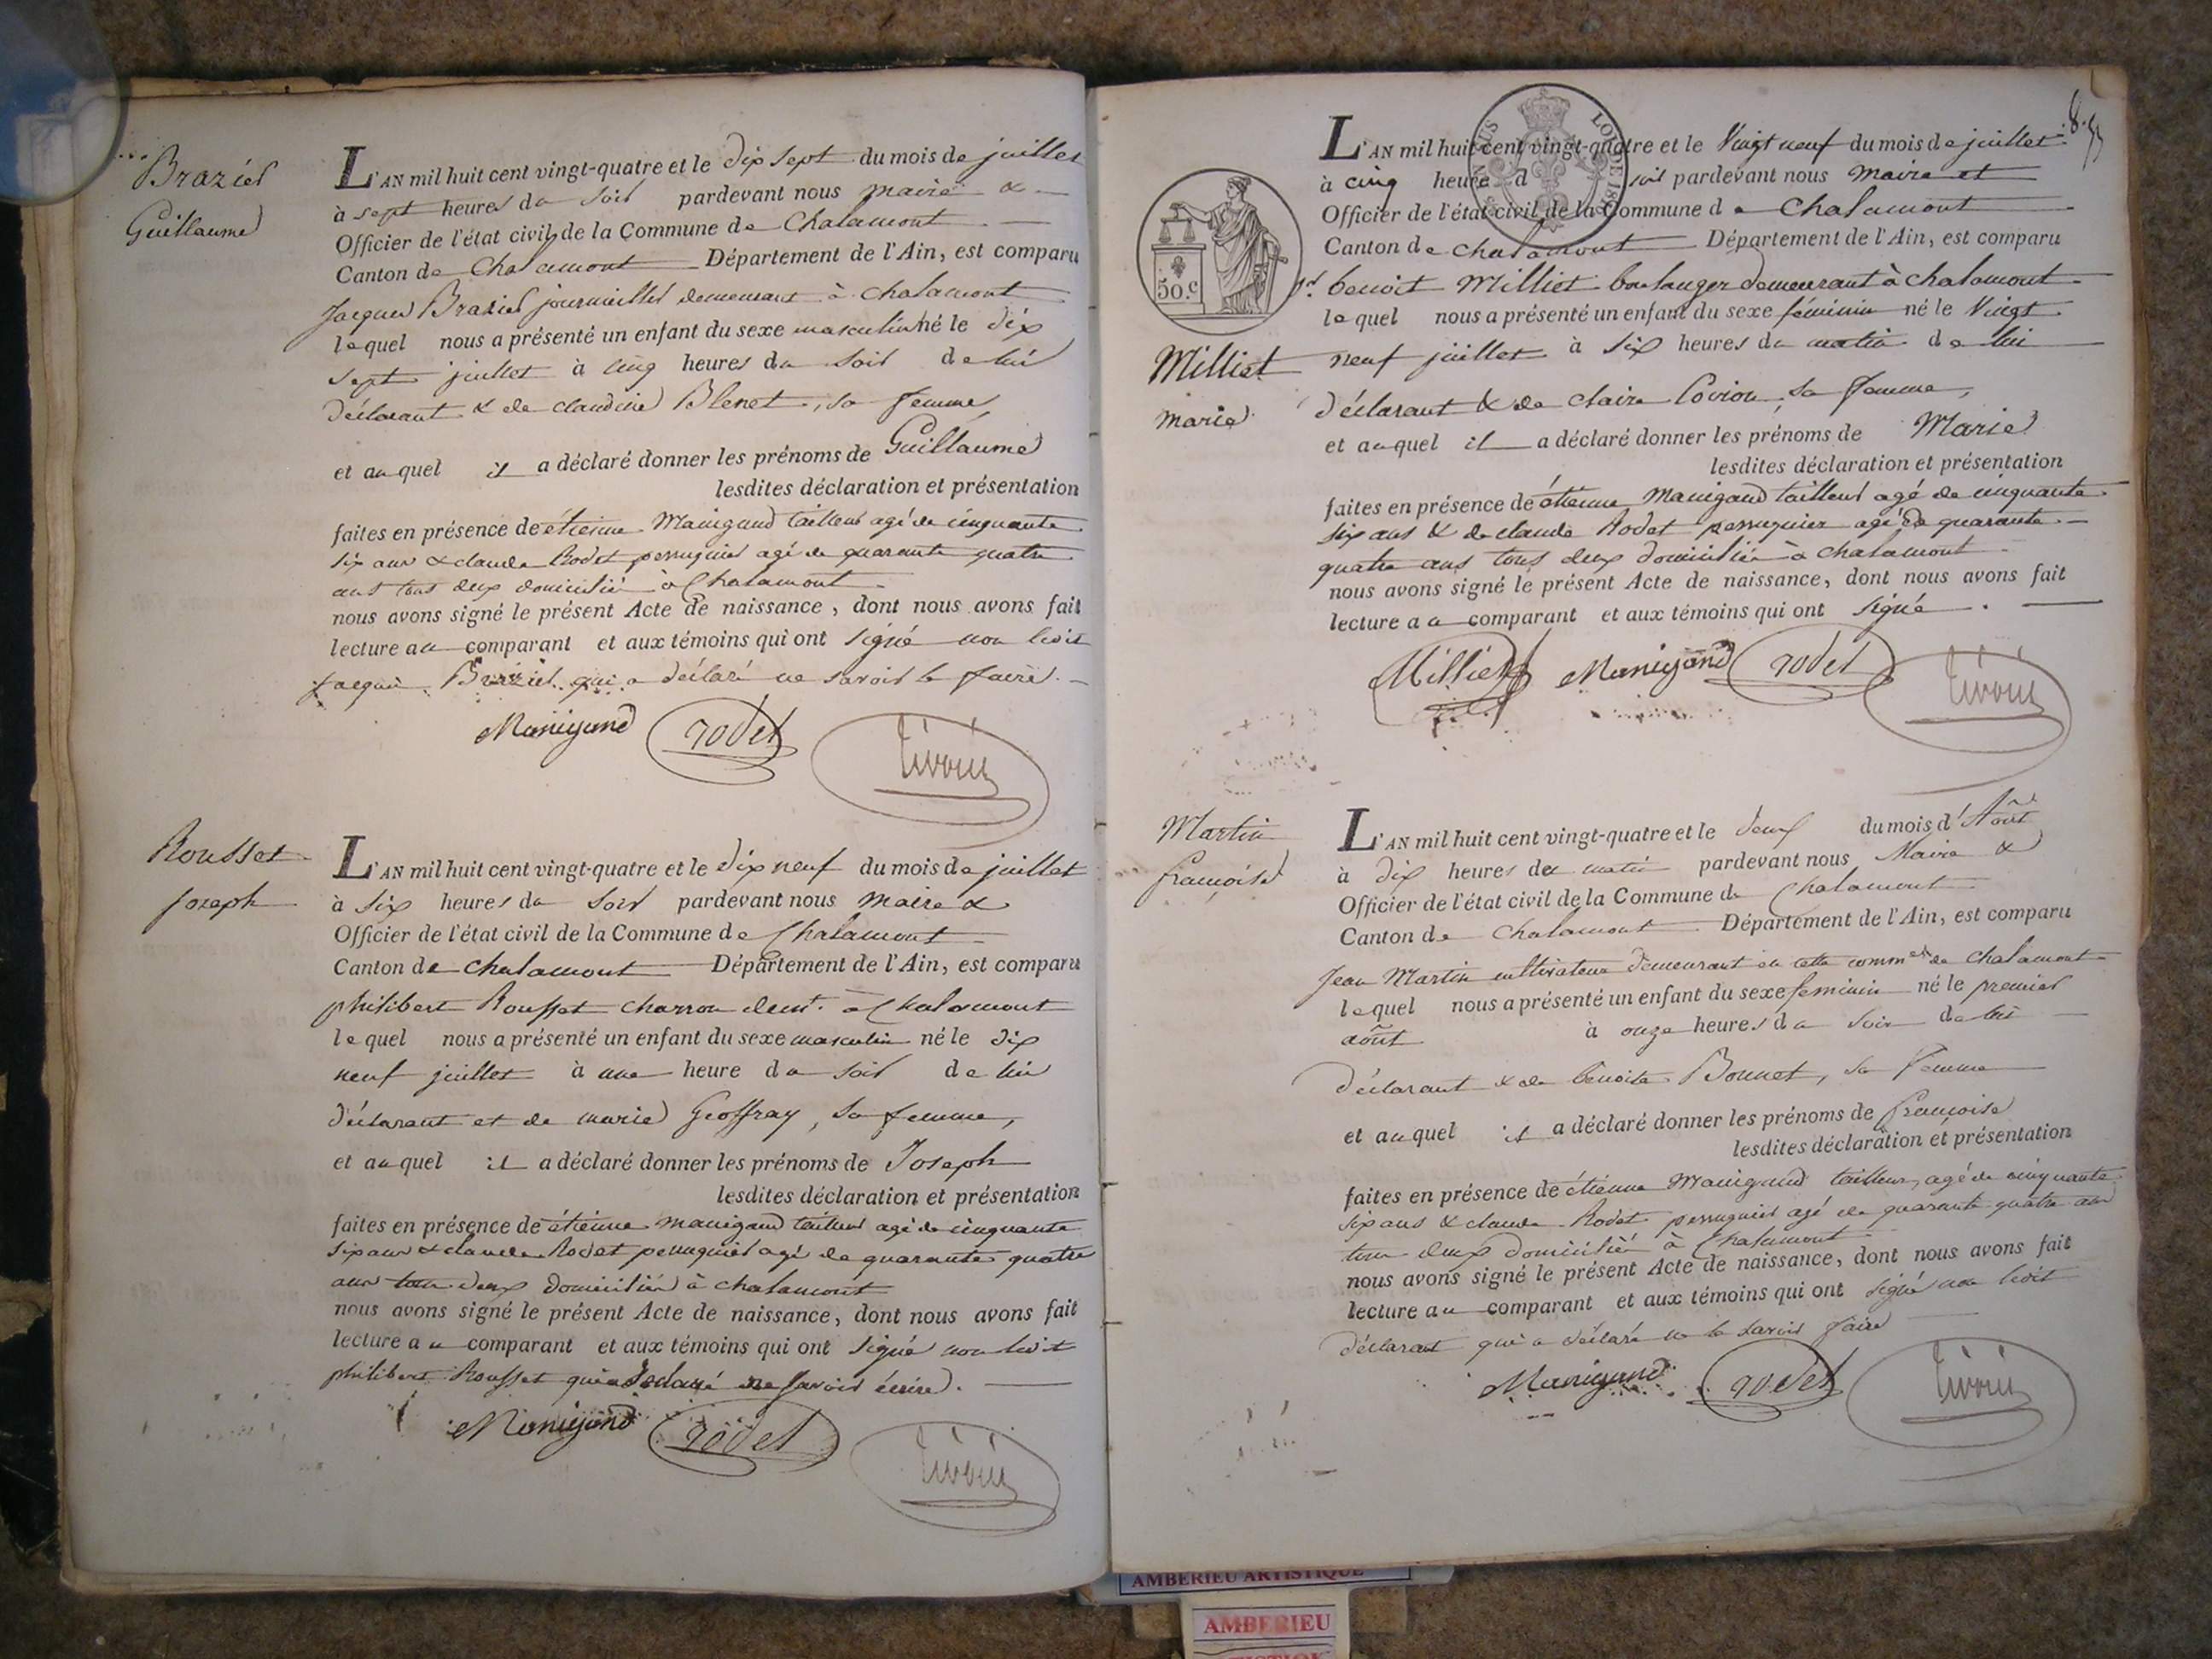 Brazier
Guillaume
L'AN mil huit cent vingt-quatre et le dix sept du mois de juillet
à sept heures du soir pardevant nous maire &
Officier de l'état civil de la Commune de Chalamont
Canton de Chalamont Département de l'Ain, est comparu
Jacques Brazier journaillier demeurant à chalamont
lequel nous a présenté un enfant du sexe masculin né le dix
sept juillet à cinq heures du soir de lui
déclarant & de claudine Blenet, sa femme,
et auquel il a déclaré donner les prénoms de Guillaume
lesdites déclaration et présentation
faites en présence de étienne Manigand tailleur agé de cinquante
six ans & claude Rodet perruquier agé de quarante quatre
ans tous deux domicilié à Chalamont
nous avons signé le présent Acte de naissance, dont nous avons fait
lecture au comparant et aux témoins qui ont signé non ledit
Jacques Brazier qui a déclaré ne savoir le faire.
Manigand rodet
Rousset
joseph
L'AN mil huit cent vingt-quatre et le dix neuf du mois de juillet
à six heures du soir pardevant nous maire &
Officier de l'état civil de la Commune de Chalamont
Canton de chalamont Département de l'Ain, est comparu
philibert Rousset charron demt. à Chalamont
lequel nous a présenté un enfant du sexe masculin né le dix
neuf juillet à une heure du soir de lui
déclarant et de marie Geoffray, sa femme,
et auquel il a déclaré donner les prénoms de Joseph
lesdites déclaration et présentation
faites en présence de étienne manigand tailleur agé de cinquante
six ans & claude Rodet perruquier agé de quarante quatre
ans tous deux domicilié à chalamont
nous avons signé le présent Acte de naissance, dont nous avons fait
lecture au comparant et aux témoins qui ont signé non ledit
philibert Rousset qui a déclaré ne savoir écrire.
Manigand rodet
50.c
Milliet
marie
L'AN mil huit cent vingt-quatre et le Vingt neuf du mois de juillet
à cinq heure d soir pardevant nous maire et
Officier de l'état civil de la Commune de Chalamont
Canton de chalamont Département de l'Ain, est comparu
sr. benoit Milliet boulanger demeurant à chalamont
lequel nous a présenté un enfant du sexe féminin né le Vingt
neuf juillet à six heures du matin de lui
déclarant & de claire Coviou, sa femme,
et auquel il a déclaré donner les prénoms de Marie
lesdites déclaration et présentation
faites en présence de étienne Manigand tailleur agé de cinquante
six ans & de claude Rodet perruquier agé de quarante
quatre ans tous deux domicilié à chalamont
nous avons signé le présent Acte de naissance, dont nous avons fait
lecture au comparant et aux témoins qui ont signé.
Milliet Manigand rodet
Martin
françoise
L'AN mil huit cent vingt-quatre et le deux du mois d'Août
à dix heures du matin pardevant nous Maire &
Officier de l'état civil de la Commune de Chalamont
Canton de Chalamont Département de l'Ain, est comparu
Jean Martin cultivateur demeurant en cette comm de chalamont
lequel nous a présenté un enfant du sexe feminin né le premier
août à onze heures du soir de lui
déclarant & de benoite Bonnet, sa femme
et auquel il a déclaré donner les prénoms de françoise
lesdites déclaration et présentation
faites en présence de étienne Manigand tailleur, agé de cinquante
six ans & claude Rodet perruquier agé de quarante quatre ans
tous deux domicilié à Chalamont
nous avons signé le présent Acte de naissance, dont nous avons fait
lecture au comparant et aux témoins qui ont signé non ledit
déclarant qui a déclaré ne le savoir faire
Manigand rodet
AMBERIEU ARTISTIQUE
AMBERIEU